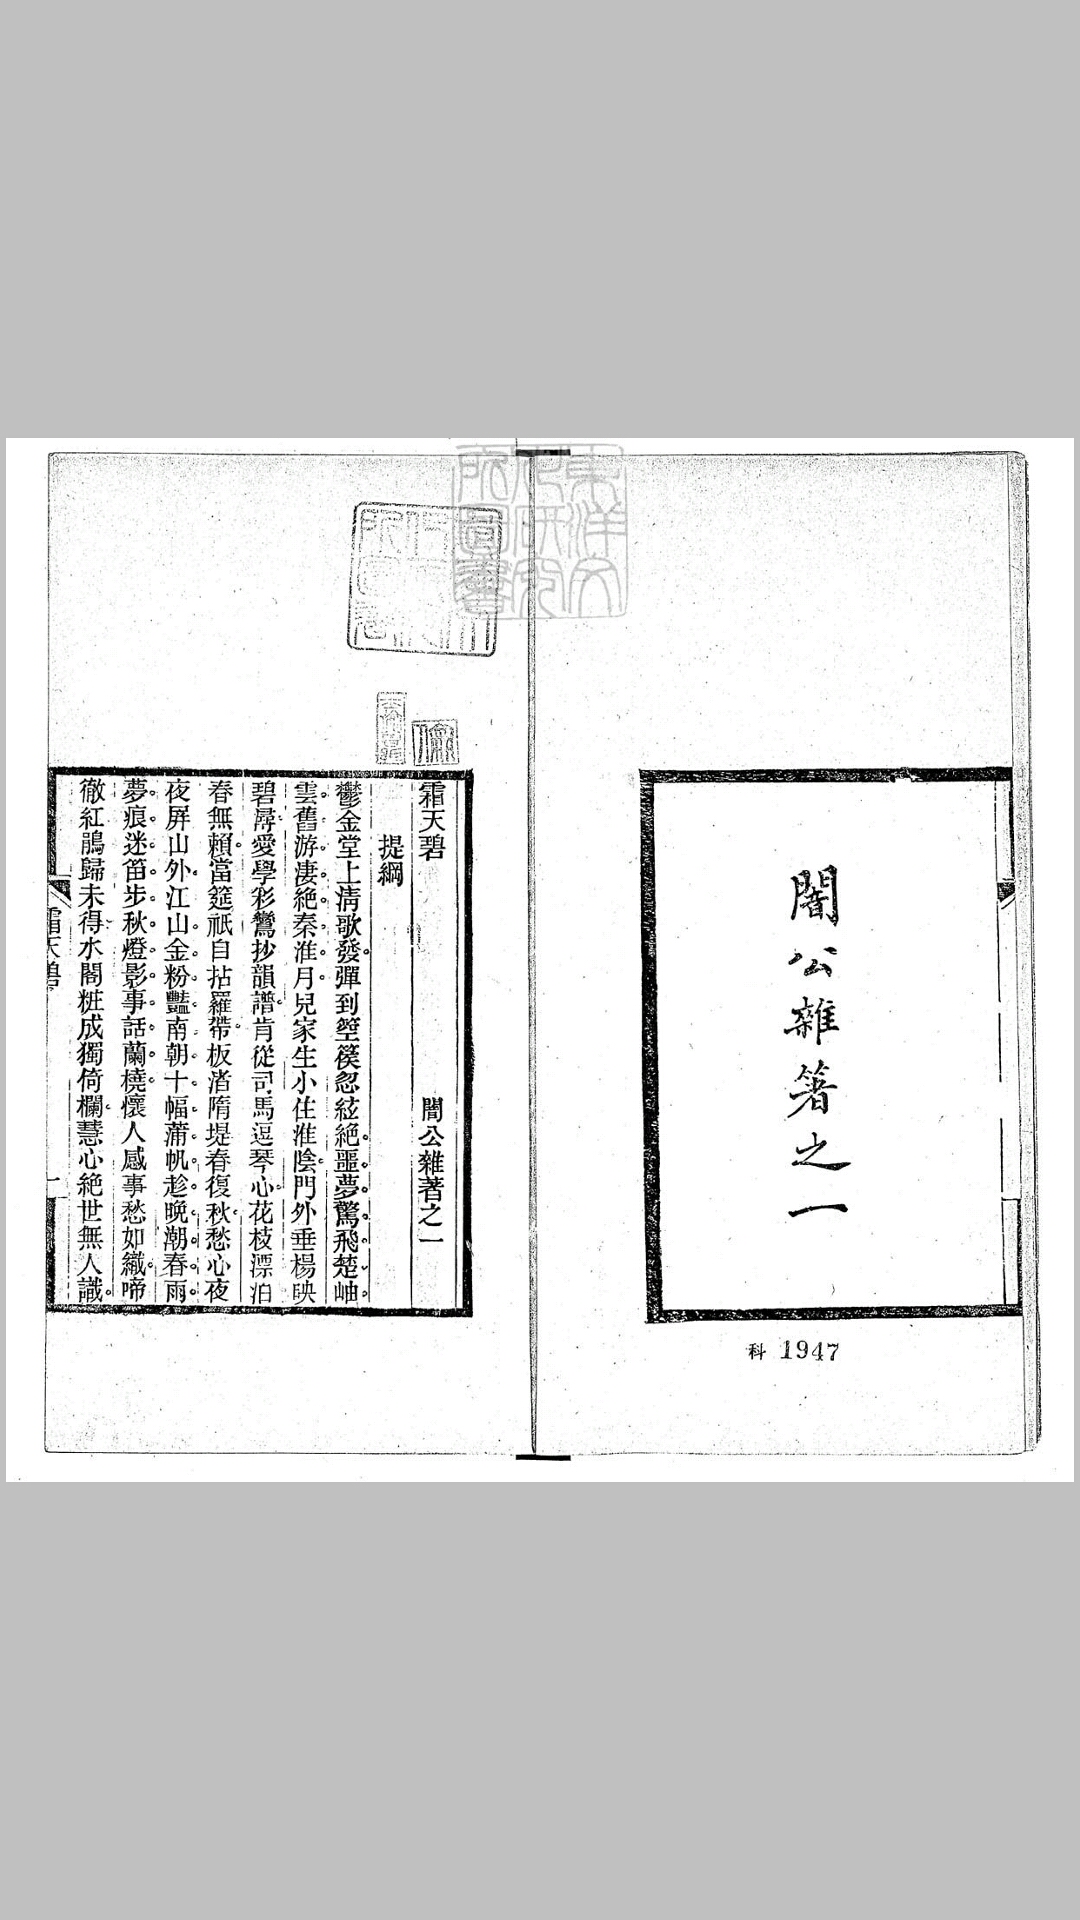 闇公雜箸之一
科 1947
霜天碧 闇公雜著之一
提綱
鬱金堂上清歌發。彈到箜篌忽絃絕。噩夢驚飛楚岫。
雲舊游淒絕秦淮月。兒家生小住淮陰。門外垂楊映
碧潯愛學彩鸞抄韻譜。肯從司馬逗琴心。花枝漂泊
春無賴。當筵祇自拈羅帶。板渚隋堤春復秋。愁心夜
夜屏山外。江山金粉豔南朝。十幅蒲帆趁晚潮。春雨。
夢痕迷笛步。秋燈影事話蘭橈。懷人感事愁如織。啼
徹紅鵑歸未得。水閣粧成獨倚欄。慧心絕世無人識。
霜天碧
一
東洋文化研究所圖書